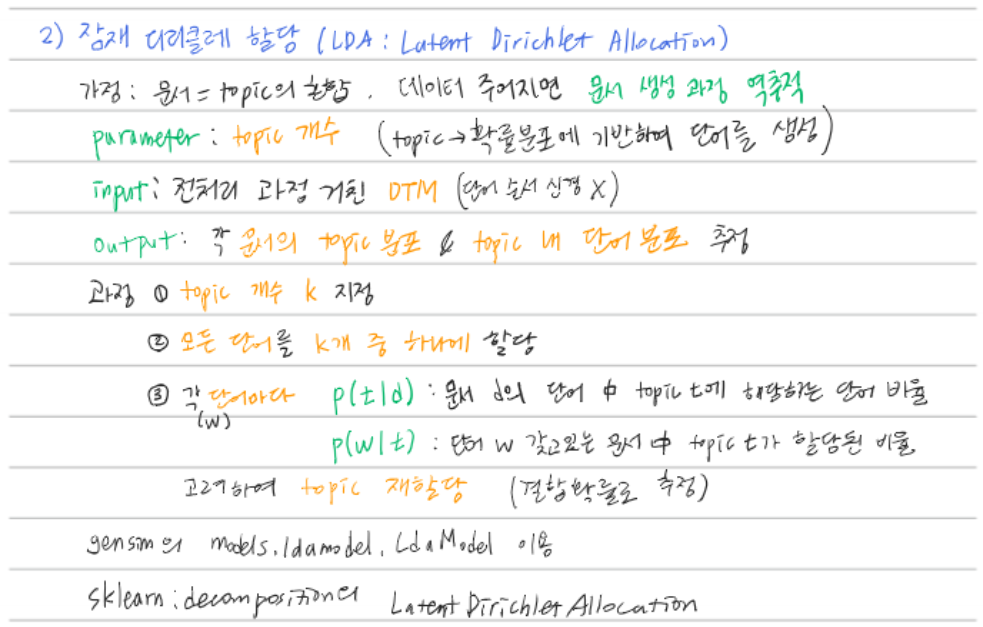 2) 잠재 디리클레 할당 (LDA : Latent Dirichlet Allocation)
가정 : 문서 = topic의 혼합 . 데이터 주어지면 문서 생성 과정 역추적
parameter : topic 개수 (topic → 확률분포에 기반하여 단어를 생성)
input : 전처리 과정 거친 DTM (단어 순서 신경 X)
output : 각 문서의 topic 분포 & topic 내 단어 분포 추정
과정 ① topic 개수 k 지정
② 모든 단어를 k개 중 하나에 할당
③ 각 단어마다 p(t|d) : 문서 d의 단어 中 topic t에 해당하는 단어 비율
(w)
p(w|t) : 단어 w 갖고있는 문서 中 topic t가 할당된 비율
고려하여 topic 재할당 (결합확률로 추정)
gensim의 models.ldamodel.LdaModel 이용
sklearn : decomposition의 Latent Dirichlet Allocation